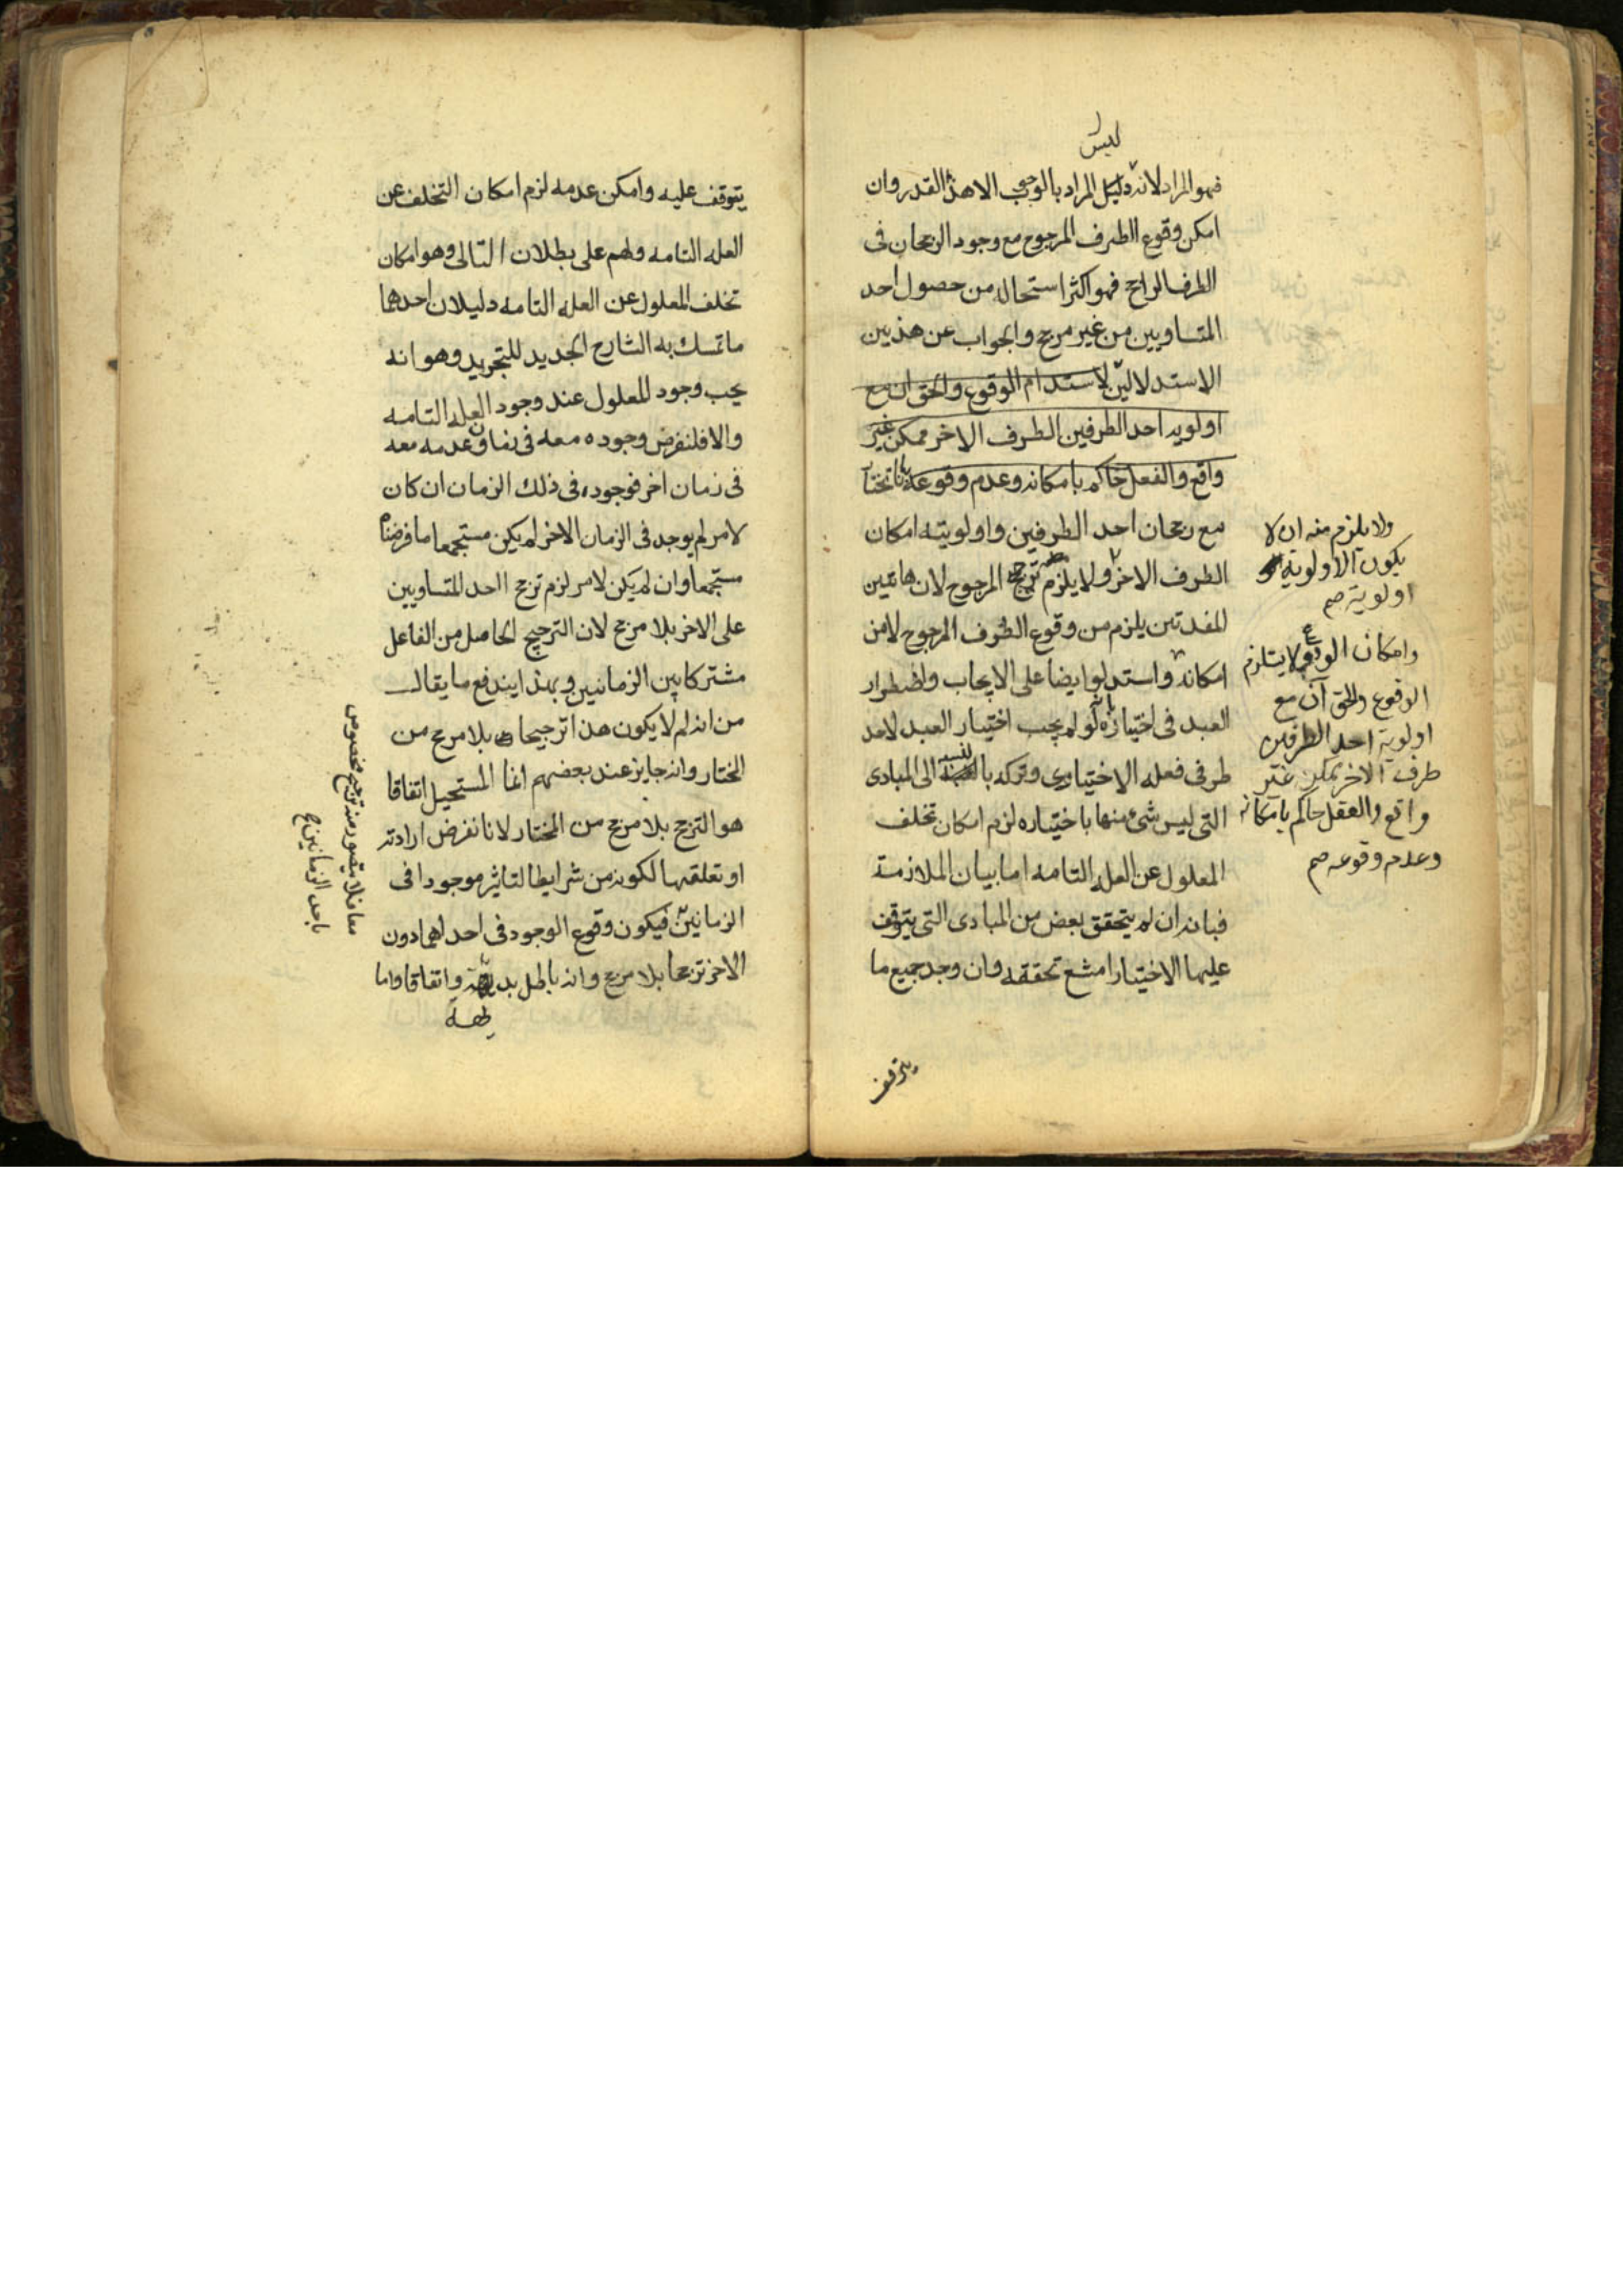 ليس
فهو المراد لانه ليس المراد بالوجوب الا هذا القدر وان
امكن وقوع الطرف المرجوح مع وجود الرجحان فى
الطرف الراجح فهو اكثر استحاله من حصول احد
المتساويين من غير مرجح والجواب عن هذين
الاستدلالين لاستدام الوقوع والحق ان مع
اولويه احد الطرفين الطرف الاخر ممكن غير
واقع والفعل حاكم بامكانه وعدم وقوعه بانا نختار
مع رجحان احد الطرفين واولويته امكان
الطرف الاخر ولا يلزم ترجح المرجوح لان هاتين
المفدتين يلزم من وقوع الطرف المرجوح لا من
امكانه واستدلوا ايضا على الايجاب واضطرار
العبد فى اختياره بانه لو لم يجب اختيار العبد لاحد
طرفى فعله الاختيارى وتركه بالنسبه الى المبادى
التى ليس شئ منها باختياره لزم امكان تخلف
المعلول عن العله التامه اما بيان الملازمة
فبانه ان لم يتحقق بعض من المبادى التى يتوقف
عليها الاختيار امتنع تحققه وان وجد جميع ما
يتوقف
ولا يلزم منه ان لا
يكون الاولوية
اولوية صح
وامكان الوقوع لا يستلزم
الوقوع والحق آن مع
اولوية احد الطرفين
طرف الاخر ممكن غير
واقع والعقل حاكم بامكانه
وعدم وقوعه صح
يتوقف عليه وامكن عدمه لزم امكان التخلف عن
العله التامه ولهم على بطلان التالى وهو امكان
تخلف المعلول عن العله التامه دليلان احدهما
ما تمسك به الشارح الجديد للتجريد وهو انه
يجب وجود المعلول عند وجود العله التامه
والا فلنفرض وجوده معه فى زمان وعدمه معه
فى زمان اخر فوجوده فى ذلك الزمان ان كان
لامر لم يوجد فى الزمان الاخر لم يكن مستجمعا ما فرضناه
مستجمعا وان لم يكن لامر لزم ترجح احد المتساويين
على الاخر بلا مرجح لان الترجيح الحاصل من الفاعل
مشتركا بين الزمانين وبهذا يندفع ما يقال
من انه لم لا يكون هذا ترجيحا بلا مرجح من
المختار وانه جايز عند بعضهم انما المستحيل اتفاقا
هو الترجح بلا مرجح من المختار لانا نفرض ارادته
او تعلقها لكونه من شرايط التاثير موجودا فى
الزمانين فيكون وقوع الوجود فى احداهما دون
الاخر ترجحا بلا مرجح وانه باطل بديهة واتفاقا واما
معا فلا يتصور منه ترجيح مخصوص
باحد الزمانين ح